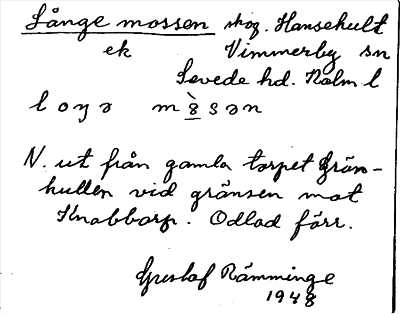 Långe mossen skog. Hansehult
ek Vimmerby sn
Sevede hd. Kalm. l
loŋə m8̀sən
N. ut från gamla torpet Grän-
hullen vid gränsen mot
Knabbarp. Odlad förr.
Gustaf Rämminge
1948